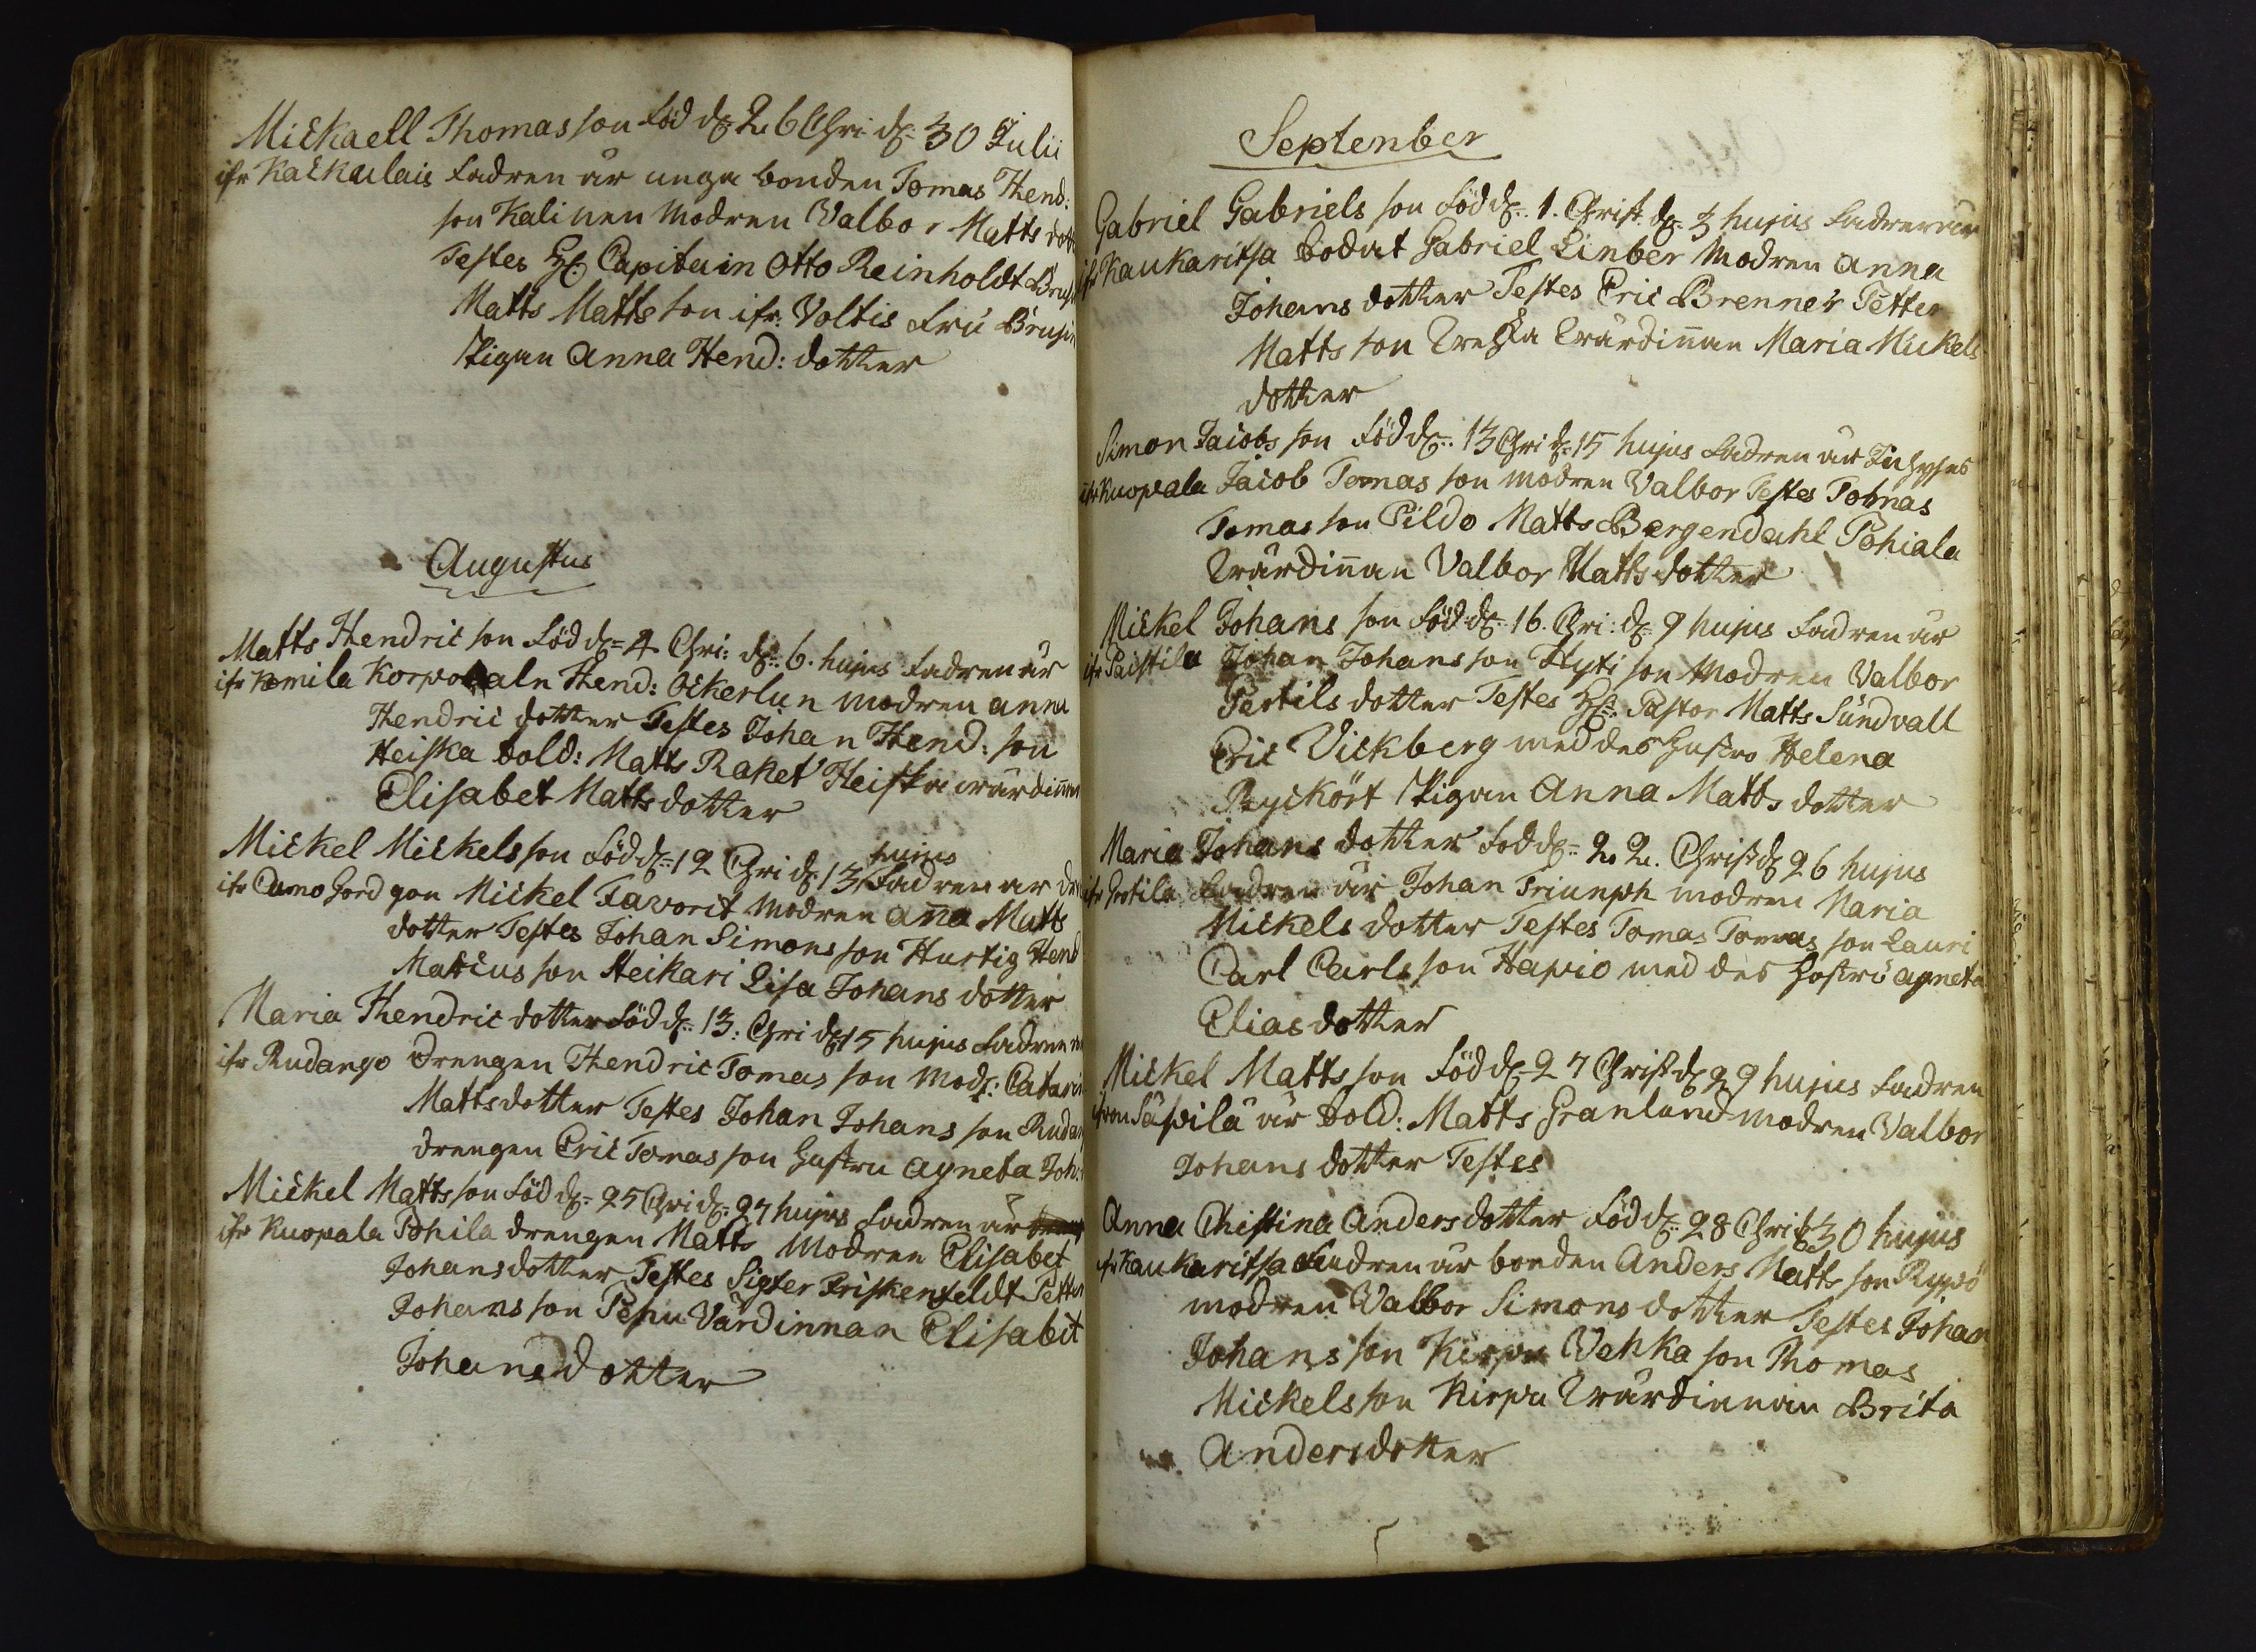 Mickaell Thomas son född d: 26 Chri d: 30 Julii
ifr Kackulais Fadren är unga bonden Tomas Hend:
son Kalinen Modren Valbor Matts dott
Testes H: Capitain Otto Reinholdt
Matts Matts son ifr: Voltis Fru
Pigan Anna Hend: dotter
Augustus
Matts Hendric son född d: 4 Chri: d: 6. hujus Fadren är
ifr Kemila Korporaln Hend: Ockerlun modren anna
Hendric dotter Testes Johan Hend: son
Heiska Sold: Matts Raket Heiska wärdinnan
Elisabet Matts dotter
Mickel Mickels son född d: 12 Chri d: 13 hujus Fadren är
ifr Cumo Gord gon Mickel Favorit Modren Anna Matts
dotter Testes Johan Simons son Hurtig Hend
Mattius son Heikari Lisa Johans dotter
Maria Hendric dotter född d: 13: Chri d: 15 hujus Fadren
ifr Rudango drengen Hendric Tomas son Mod: Catari
Matts dotter Testes Johan Johans son Rudan
drengen Eric Tomas son hustru Agneta Joh:
Mickel Matts son född d: 25 Chri d: 27 hujus Fadren är
ifr Kuopala Pohila drengen Matts Modren Elisabet
Johans dotter Testes Sigfer Friskenfeldt Petter
Johans son Pepu Värdinnan Elisabet
Johans dotter
September
Gabriel Gabriels son född d: 1. Christ d: 3 hujus Fadren är
ifr Kaukaritsa Sodat Gabriel Linber Modren Anna
Johans dotter Testes Eric Brenner Petter
Matts son wärdinnan Maria Mickels
dotter
Simon Jacobs son född d: 13 Chri d: 15 hujus Fadren är
ifr Kuopala Jacob Tomas son modren Valbor Testes Tomas
Tomas son Pildo Matts Bergendahl Pohiala
Wärdinnan Valbor Matts dotter
Mickel Johans son född d: 16. Chri: d: 9 hujus Fadren är
ifr Paistila Johan Johans son Hyti son Modren Valbor
Pertils dotter Testes H: Pastor Matts Sundvall
Eric Vickberg med des hustro Helena
Ryckört Pigan Anna Matts dotter
Maria Johans dotter Född d: 22. Christ d 26 hujus
ifr Fadren är Johan Triunph modren Maria
Mickels dotter Testes Tomas Tomas son Lauri
Carl Carls son Hapio med des hustru Agneta
Elias dotter
Mickel Matts son född d: 27 Christ d 29 hujus Fadren
ifron Säpilä är Sold: Matts Granlund modren Valbor
Johans dotter Testes
Anna Chistina Anders dotter född d: 28 Chri d 30 hujus
ifr Kaukaritsa Fadren är bonden Anders Matts son Rypö
modren Valbor Simons dotter Testes Johan
Johans son Kirpu Vehka son Thomas
Mickels son Kirpu Wärdinnan Brita
Anders dotter